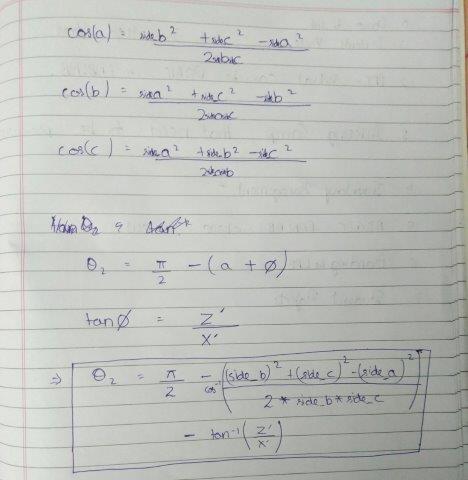 cos(a) = side_b² + side_c² - side_a² / 2side_b side_c
cos(b) = side_a² + side_c² - side_b² / 2side_a side_c
cos(c) = side_a² + side_b² - side_c² / 2side_a side_b
θ₂ = π/2 - (a + ø)
tanø = Z'/X'
⇒ θ₂ = π/2 - cos⁻¹((side_b)² + (side_c)² - (side_a)² / 2 * side_b * side_c)
- tan⁻¹(Z'/X')